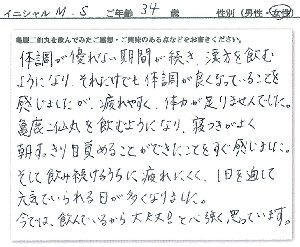 イニシャル M.S ご年齢 34 歳 性別（男性・女性）
亀鹿二仙丸を飲んでみたご感想・ご実感のある点などをお書きください。
体調が優れない期間が続き、漢方を飲む
ようになり、それだけでも体調が良くなっていることを
感じましたが、疲れやすく、体力が足りませんでした。
亀鹿二仙丸を飲むようになり、寝つきがよく
朝すっきり目覚めることができたことをすぐ感じました。
そして飲み続けるうちに疲れにくく、1日を通して
元気でいられる日が多くなりました。
今では、飲んでいるから大丈夫!と心強く思っています。